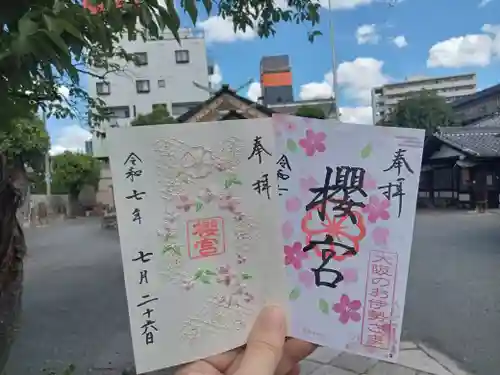 奉拝
櫻宮
令和七年 七月二十六日
奉拝
櫻宮
大阪のお伊勢さま